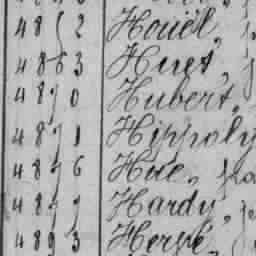 4852 Houël,
4863 Huet,
4870 Hubert,
4871 Hippoly
4876 Hue,
4879 Hardy,
4893 Hervé,